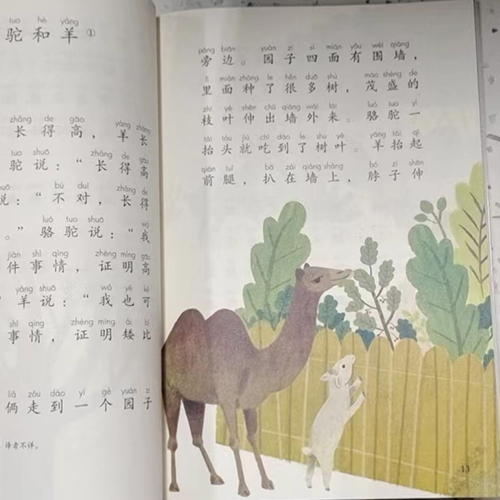 tuó hé yáng
驼和羊①
zhǎng de gāo yáng zhǎng
长得高，羊长
tuó shuō zhǎng de gāo
驼说：“长得高
shuō bú duì zhǎng de
：“不对，长得
luò tuo shuō wǒ
。”骆驼说：“我
jiàn shì qing zhèng míng gāo
件事情，证明高
yáng shuō wǒ yě kě
”羊说：“我也可
shì qing zhèng míng ǎi bǐ
事情，证明矮比
liǎ zǒu dào yí gè yuán zi
俩走到一个园子
译者不详。
páng biān yuán zi sì miàn yǒu wéi qiáng
旁边。园子四面有围墙，
lǐ miàn zhòng le hěn duō shù mào shèng de
里面种了很多树，茂盛的
zhī yè shēn chū qiáng wài lái luò tuo yì
枝叶伸出墙外来。骆驼一
tái tóu jiù chī dào le shù yè yáng tái qǐ
抬头就吃到了树叶。羊抬起
qián tuǐ pā zài qiáng shàng bó zi shēn
前腿，扒在墙上，脖子伸
13